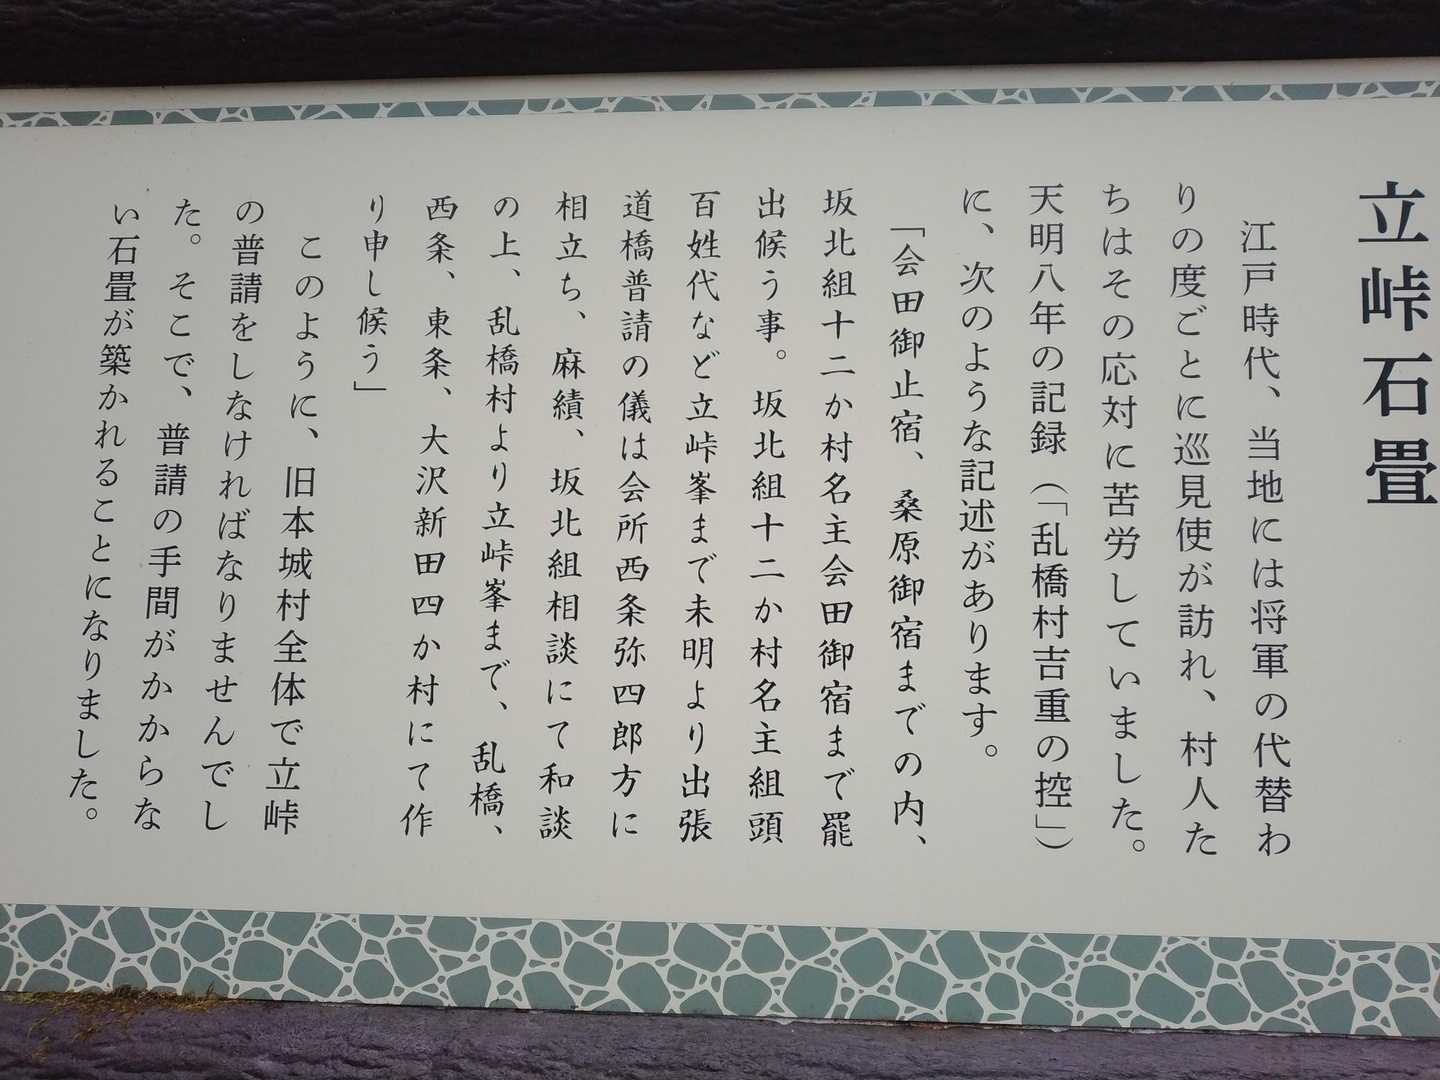 立峠石畳
江戸時代、当地には将軍の代替わ
りの度ごとに巡見使が訪れ、村人た
ちはその応対に苦労していました。
天明八年の記録（「乱橋村吉重の控」）
に、次のような記述があります。
「会田御止宿、桑原御宿までの内、
坂北組十二か村名主会田御宿まで罷
出候う事。坂北組十二か村名主組頭
百姓代など立峠峯まで未明より出張
道橋普請の儀は会所西条弥四郎方に
相立ち、麻績、坂北組相談にて和談
の上、乱橋村より立峠峯まで、乱橋、
西条、東条、大沢新田四か村にて作
り申し候う」
このように、旧本城村全体で立峠
の普請をしなければなりませんでし
た。そこで、普請の手間がかからな
い石畳が築かれることになりました。